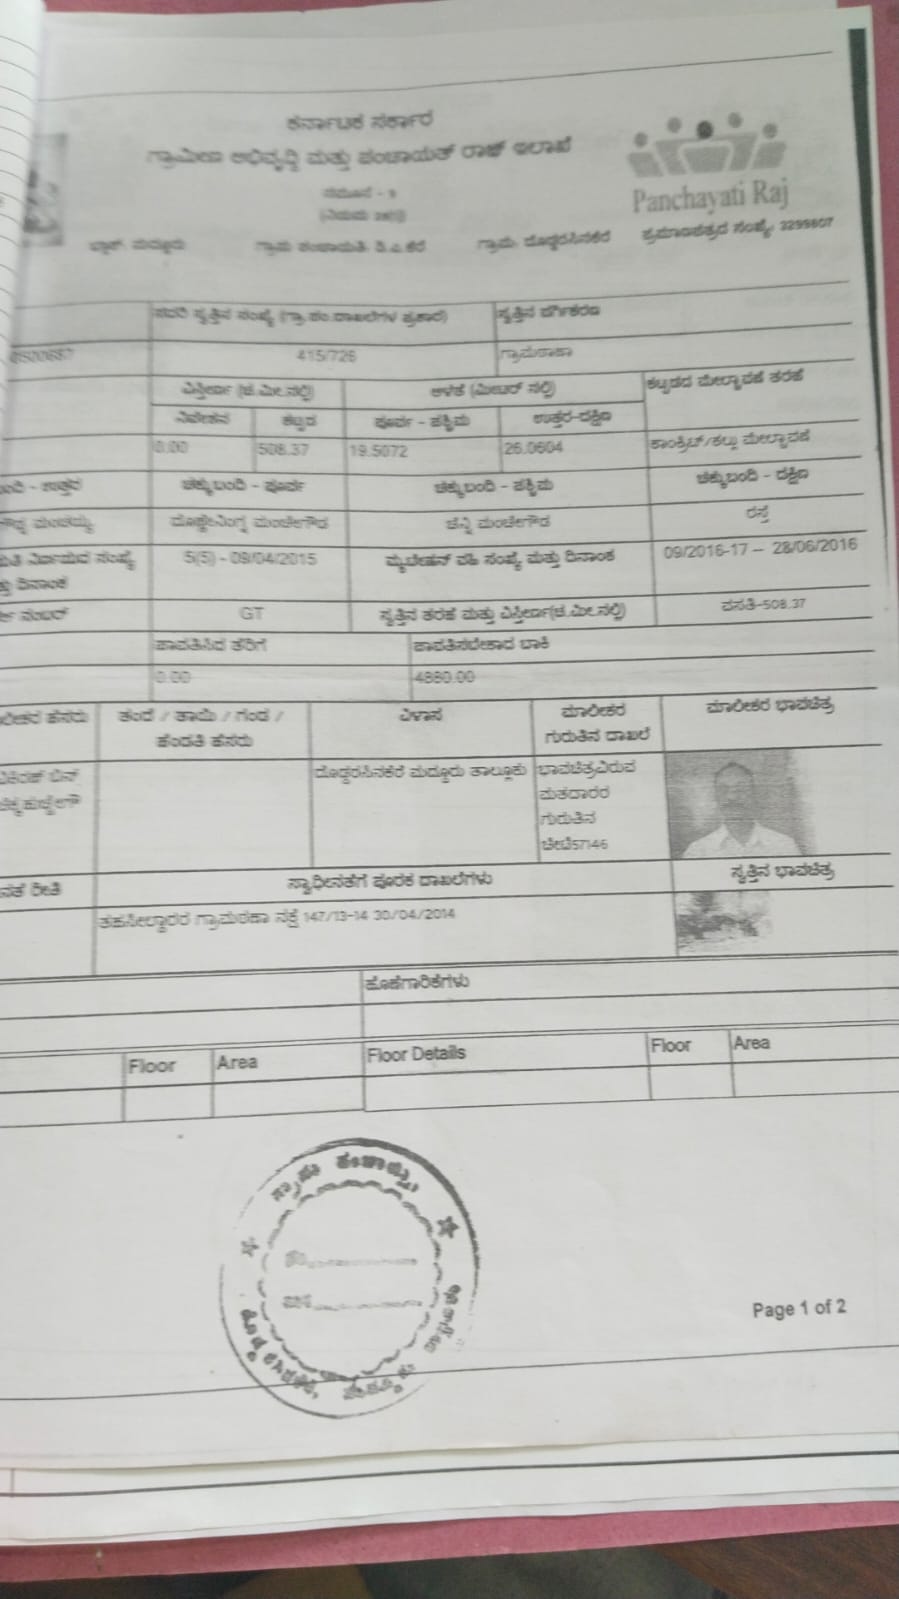 ಕರ್ನಾಟಕ ಸರ್ಕಾರ
ಗ್ರಾಮೀಣ ಅಭಿವೃದ್ಧಿ ಮತ್ತು ಪಂಚಾಯತ್ ರಾಜ್ ಇಲಾಖೆ
Panchayati Raj
ನಮೂನೆ - 9
ಗ್ರಾಮ ಪಂಚಾಯತಿ ಗ್ರಾಮ: ದೊಡ್ಡರಸಿನಕೆರೆ ಪ್ರಮಾಣಪತ್ರದ ಸಂಖ್ಯೆ: 3299807
ಸದರಿ ಸ್ವತ್ತಿನ ಸಂಖ್ಯೆ (ಗ್ರಾ.ಪಂ.ದಾಖಲೆಗಳ ಪ್ರಕಾರ) ಸ್ವತ್ತಿನ ವರ್ಗೀಕರಣ
415/726 ಗ್ರಾಮಠಾಣಾ
ವಿಸ್ತೀರ್ಣ (ಚ.ಮೀ.ನಲ್ಲಿ) ಅಳತೆ (ಮೀಟರ್ ನಲ್ಲಿ) ಕಟ್ಟಡದ ಮೇಲ್ಛಾವಣಿ ತರಹೆ
ನಿವೇಶನ ಕಟ್ಟಡ ಪೂರ್ವ - ಪಶ್ಚಿಮ ಉತ್ತರ-ದಕ್ಷಿಣ
0.00 508.37 19.5072 26.0604 ಕಾಂಕ್ರಿಟ್/ಕಲ್ಲು ಮೇಲ್ಛಾವಣಿ
ಉತ್ತರ ಚಕ್ಕುಬಂದಿ - ಪೂರ್ವ ಚಕ್ಕುಬಂದಿ - ಪಶ್ಚಿಮ ಚಕ್ಕುಬಂದಿ - ದಕ್ಷಿಣ
ಮಂಚೇಗೌಡ ಚನ್ನಿ ಮಂಚೇಗೌಡ ರಸ್ತೆ
ನಿರ್ಣಯದ ಸಂಖ್ಯೆ 5(5) - 09/04/2015 ಮ್ಯುಟೇಶನ್ ವಹಿ ಸಂಖ್ಯೆ ಮತ್ತು ದಿನಾಂಕ 09/2016-17 – 28/06/2016
ದಿನಾಂಕ
ನಂಬರ್ GT ಸ್ವತ್ತಿನ ತರಹೆ ಮತ್ತು ವಿಸ್ತೀರ್ಣ(ಚ.ಮೀ.ನಲ್ಲಿ) ವಸತಿ-508.37
ಪಾವತಿಸಿದ ತೆರಿಗೆ ಪಾವತಿಸಬೇಕಾದ ಬಾಕಿ
0.00 4880.00
ಹೆಸರು ತಂದೆ / ತಾಯಿ / ಗಂಡ / ವಿಳಾಸ ಮಾಲೀಕರ ಮಾಲೀಕರ ಭಾವಚಿತ್ರ
ಹೆಂಡತಿ ಹೆಸರು ಗುರುತಿನ ದಾಖಲೆ
ಬಿನ್ ದೊಡ್ಡರಸಿನಕೆರೆ ಮದ್ದೂರು ತಾಲ್ಲೂಕು ಭಾವಚಿತ್ರವಿರುವ
ಮತದಾರರ
ಗುರುತಿನ
ಚೀಟಿ57146
ರೀತಿ ಸ್ವಾಧೀನತೆಗೆ ಪೂರಕ ದಾಖಲೆಗಳು ಸ್ವತ್ತಿನ ಭಾವಚಿತ್ರ
ತಹಸೀಲ್ದಾರರ ಗ್ರಾಮಠಾಣಾ ನಕ್ಷೆ 147/13-14 30/04/2014
ಹೊಣೆಗಾರಿಕೆಗಳು
Floor Area Floor Details Floor Area
Page 1 of 2